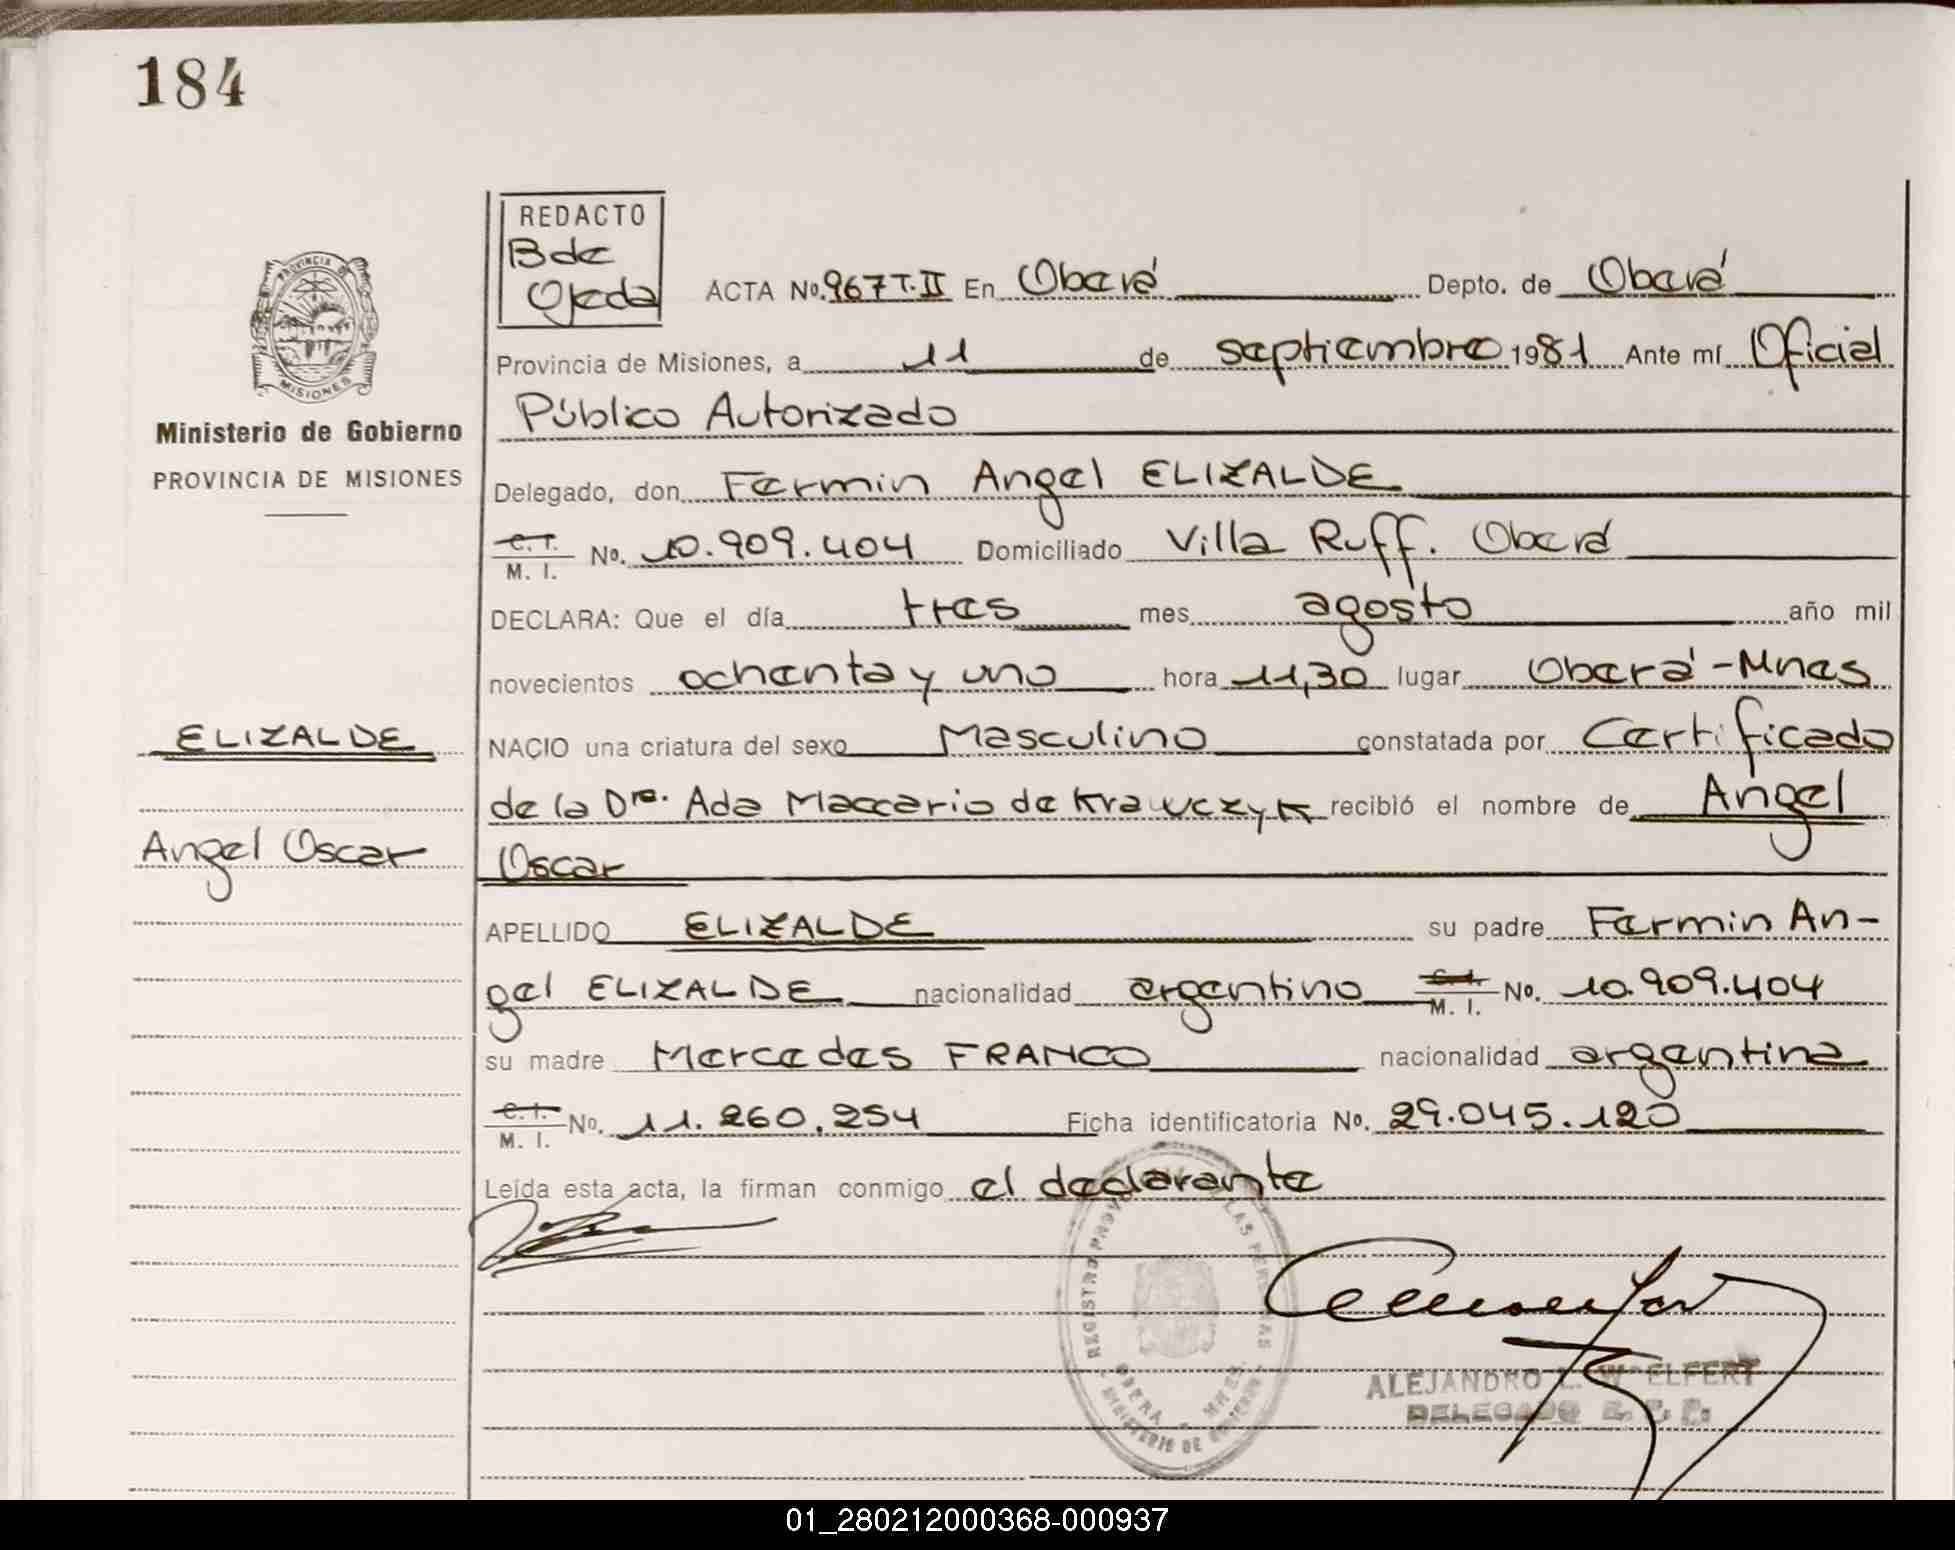 184
REDACTO
B de
Ojeda
ACTA No. 967 T. II En Oberá Depto. de Oberá
PROVINCIA DE
MISIONES
Provincia de Misiones, a 11 de septiembre 1981 Ante mí Oficial
Público Autorizado
Ministerio de Gobierno
PROVINCIA DE MISIONES
Delegado, don Fermin Angel ELIZALDE
C. I.
M. I. No. 10.909.404 Domiciliado Villa Ruff. Oberá
DECLARA: Que el día tres mes agosto año mil
novecientos ochenta y uno hora 11,30 lugar Oberá-Mnes
ELIZALDE
NACIO una criatura del sexo Masculino constatada por Certificado
de la Dra. Ada Maccario de Krawczyk recibió el nombre de Angel
Angel Oscar
Oscar
APELLIDO ELIZALDE su padre Fermin An-
gel ELIZALDE nacionalidad argentino C. I.
M. I. No. 10.909.404
su madre Mercedes FRANCO nacionalidad argentina
C. I.
M. I. No. 11.260.254 Ficha identificatoria No. 29.045.120
Leída esta acta, la firman conmigo el declarante
REGISTRO PROV LAS PERSONAS
OBERA - MNES.
MINISTERIO DE GOBIERNO
ALEJANDRO L. WELFERT
DELEGADO
01_280212000368-000937